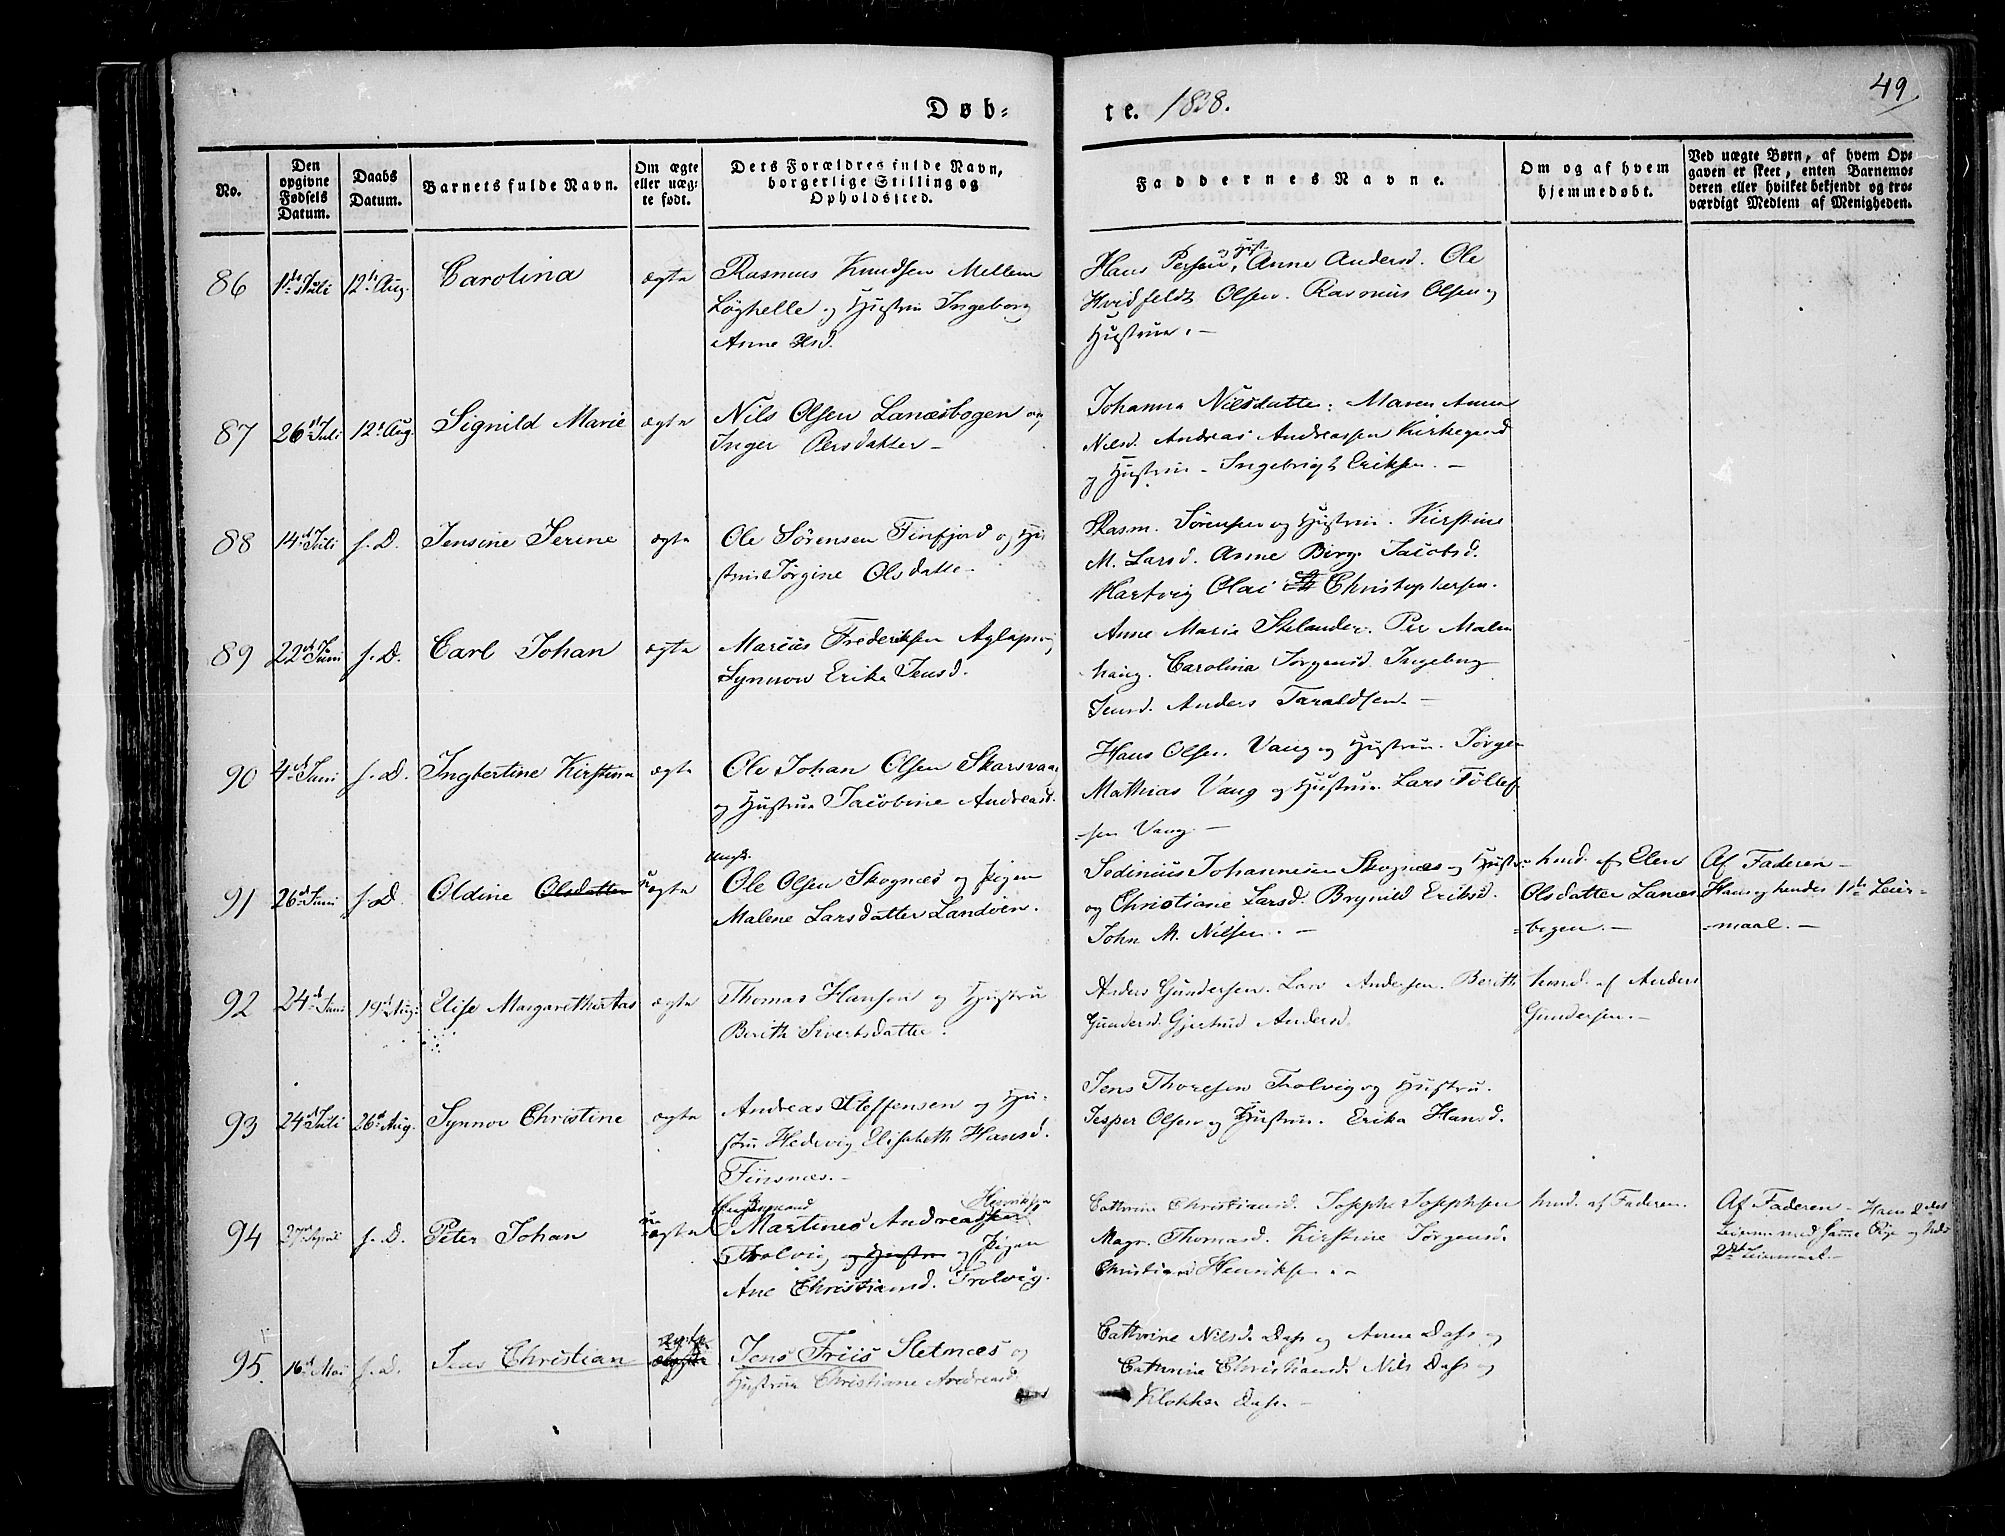 49
Døb- te. 1838.
No.
Den opgivne Fødsels Datum.
Daabs Datum.
Barnets fulde Navn.
Om ægte eller uæg- te født.
Dets Forældres fulde Navn, borgerlige Stilling og Opholdssted.
Faddernes Navne.
Om og af hvem hjemmedøbt.
Ved uægte Børn, af hvem Op- gaven er skeet, enten Barnemo- deren eller hvilket bekjendt og tro- værdigt Medlem af Menigheden.
86 1ste Juli 12te Aug. Carolina ægte
Rasmus Knudsen Mellem
Løghelle og Hustru Ingeborg
Anne Olsd.
Hans Persen og Hust. Anne Andersd. Ole
Hvidfeldt Olsen. Rasmus Olsen og
Hustrue. -
87 26d Juli 12t Aug. Signild Marie ægte
Nils Olsen Lanæsbogen og
Inger Persdatter -
Johanna Nilsdatte. Maren Anna
Nilsd. Andreas Andreassen Kirkegaard
og Hustru - Ingebrigt Eriksen. -
88 14d Juli s. D. Jensine Serine ægte
Ole Sørensen Finfjord og Hu-
stru Jørgine Olsdatte
Rasm. Sørensen og Hustru. Kirstine
M. Larsd. Anne Birg. Jacobsd.
Hartvig Olai Christophersen.
89 22d Juni s. D. Carl Johan ægte
Marius Frederiksen Aglapsvig
Synnov Erika Jensd.
Anne Maria Stelander. Per Malm
haug. Carolina Jørgensd. Ingeborg
Jensd. Anders Taraldsen. -
90 4d Juni s. D. Ingbertine Kirstina ægte
Ole Johan Olsen Skarsvaag
og Hustrue Jacobine Andreasd.
Hans Olsen. Vang og Hustrue. Jørgen
Mathias Vang og Hustrue. Lars Tøllef
-sen Vang. -
91 26d Juni s. D. Oldine Olsdatter uægte
Ungk.
Ole Olsen Skognæs og Pigen
Malene Larsdatter Landøen.
Sedinius Johannesen Skognæs og Hustru
og Christiane Larsd. Brynild Eriksd.
John M. Nilsen. -
hmd. af Elen
Olsdatter Lanæs
-bogen. -
Af Faderen -
Hans og hendes 1ste Leier-
-maal. -
92 24d Juni 19d Aug. Elise Margarethe ægte
Thomas Hansen og Hustru
Berith Sivertsdatter.
Anders Gundersen. Lars Andersen. Berith
Gundersd. Gjertrud Andersd.
hmd. af Anders
Gundersen. -
93 24d Juli 26d Aug. Synnov Christine ægte
Andreas Steffensen og Hu-
stru Hedevig Elisabeth Hansd.
Finsnæs. -
Jens Thoresen Trolvig og Hustru.
Jesper Olsen og Hustru. Erika Hansd.
94 27d April s. D. Peter Johan uægte
Henriksen
Martines Andreassen
Trolvig og Hustru og Pigen
Ane Christiansd. Trolvig.
Cathrine Christiansd. Joseph Josephsen
Magr. Thomasd. Kirstine Jørgensd.
Christian Henriksen. -
hmd. af Faderen.
Af Faderen - Hans 2det
Leierm. med samme Pige og hendes
2det Leiermaal. -
95. 16d Mai s. D. Jens Christian ægte
Jens Friis Sletnæs og
Hustrue Christiane Andreasd.
Cathrine Nilsd. Dass og Anne Dass og
Cathrine Christiansd. Nils Dass og
Klokker Dass. -